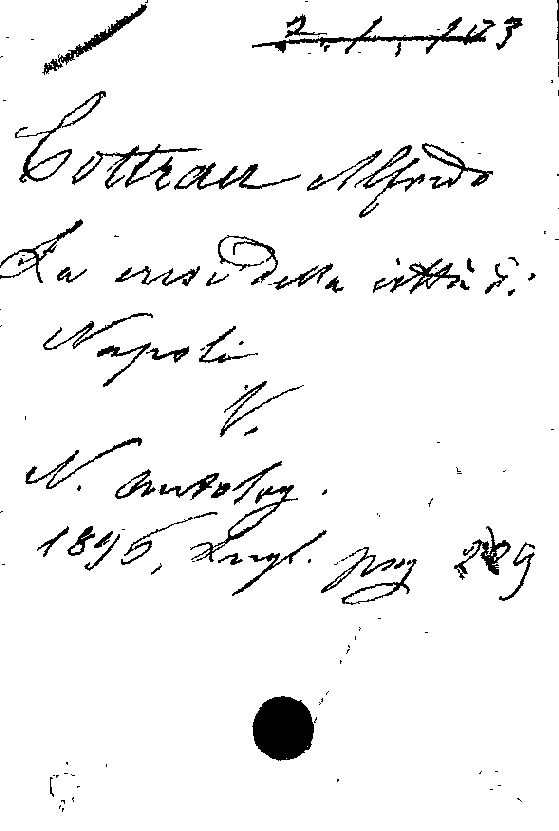 Cottrau Alfredo
La crisi della città di
Napoli
V.
N. Antolog.
1895, Lugl. pag 209